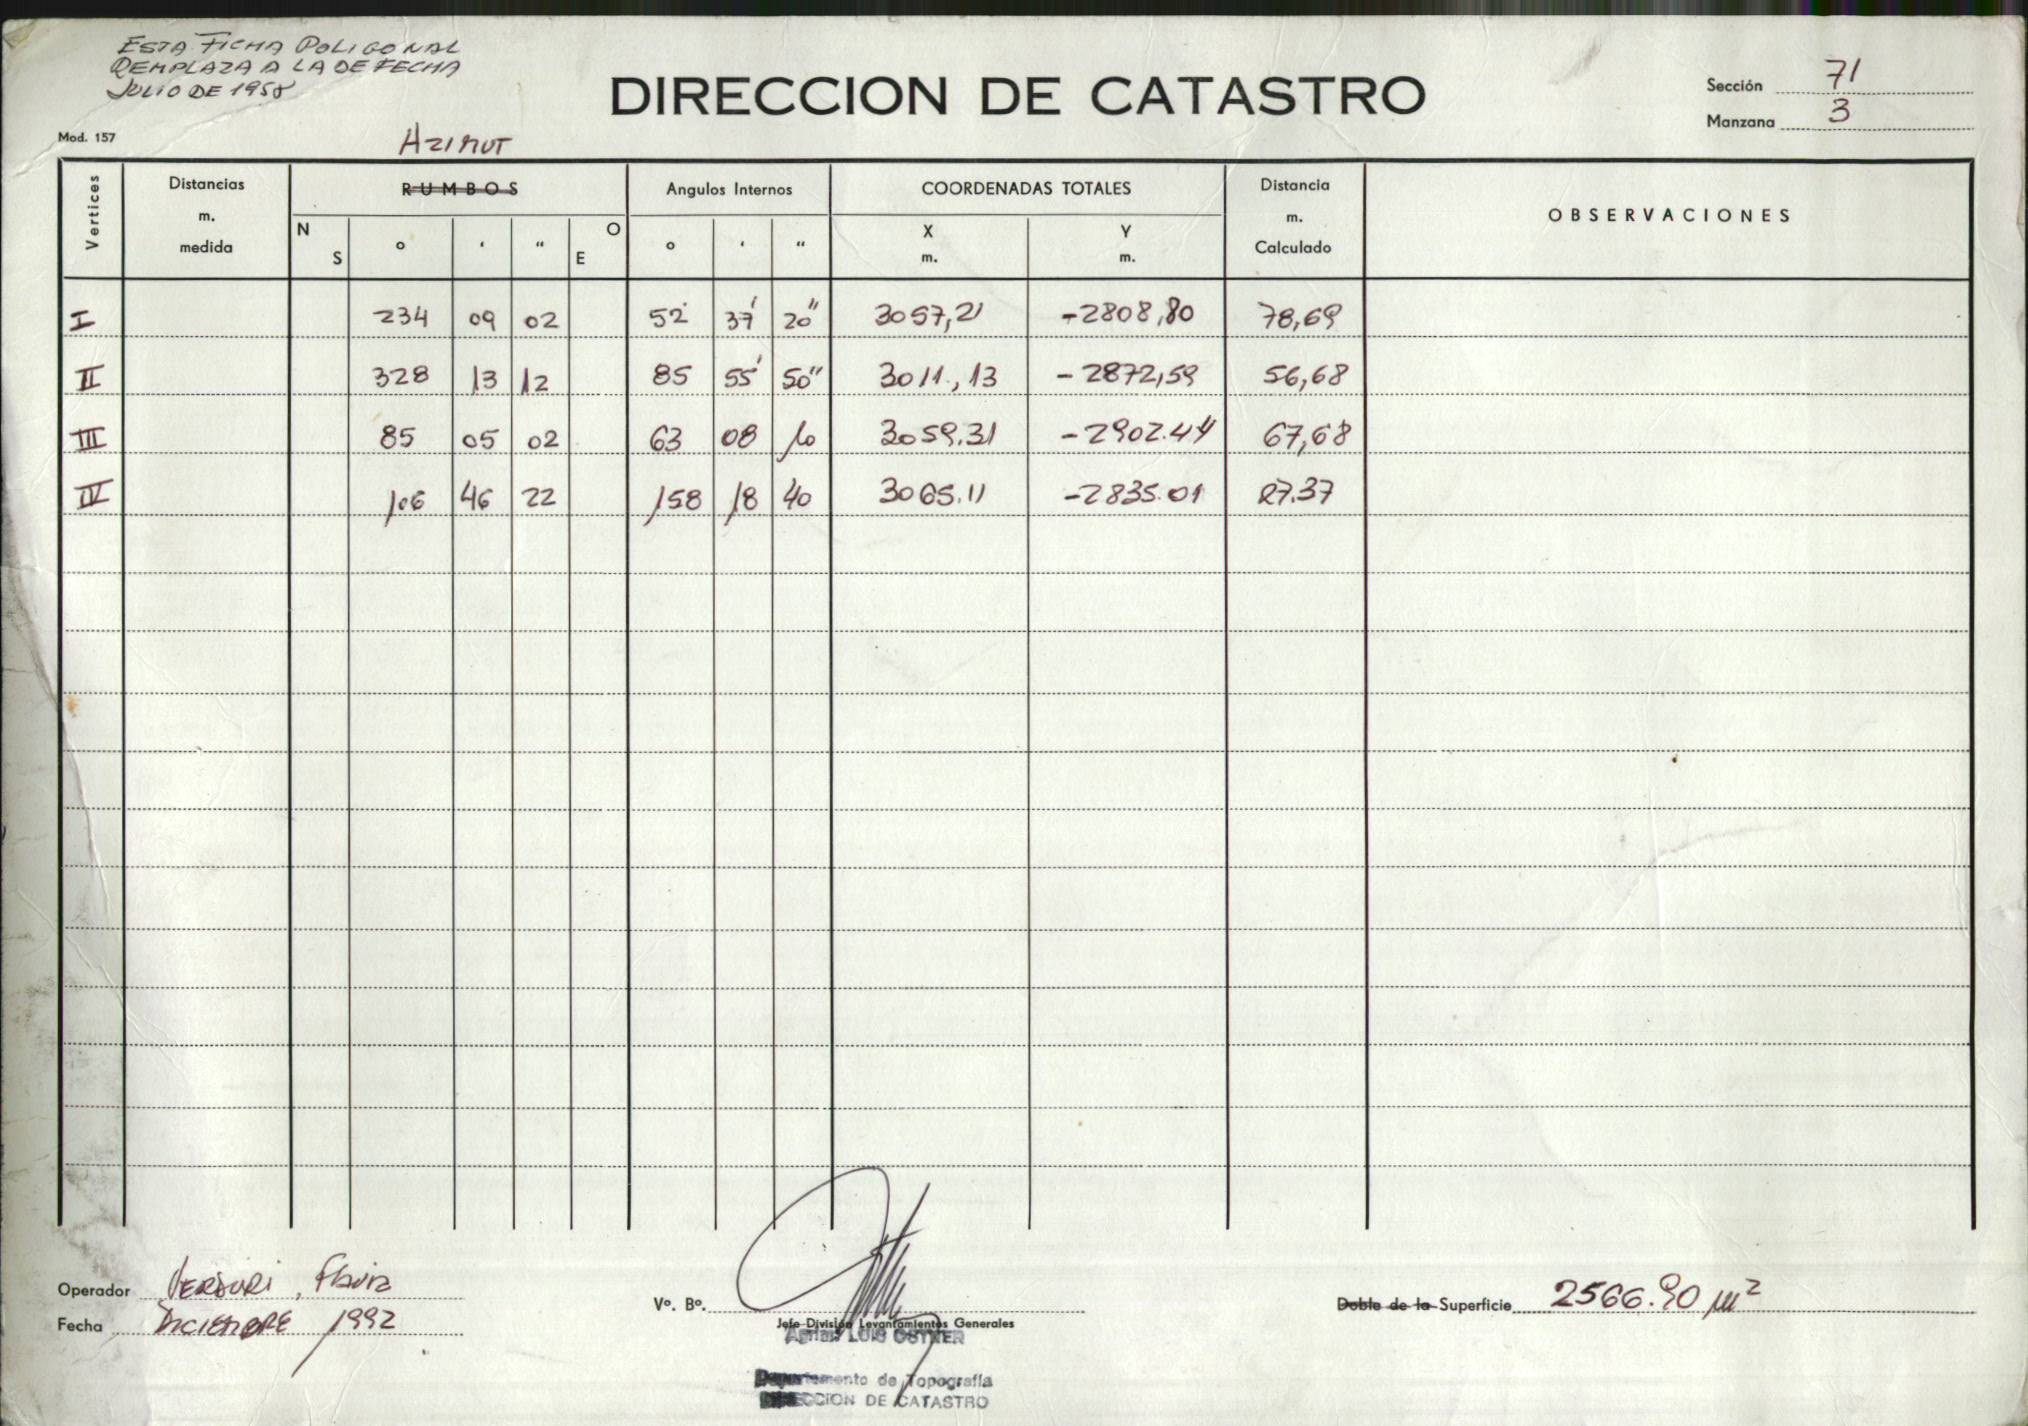 ESTA FICHA POLIGONAL
REMPLAZA A LA DE FECHA
JULIO DE 1958
DIRECCION DE CATASTRO
Sección 71
Manzana 3
Mod. 157
AZIMUT
Vertices Distancias m. medida RUMBOS Angulos Internos COORDENADAS TOTALES Distancia m. Calculado OBSERVACIONES
N S ° ' " E O ° ' " X m. Y m.
I 234 09 02 52° 37' 20" 3057,21 -2808,80 78,69
II 328 13 12 85 55' 50" 3011,13 -2872,59 56,68
III 85 05 02 63 08 10 3059.31 -2902.44 67,68
IV 106 46 22 158 18 40 3065.11 -2835.01 27.37
Operador Flavia
Fecha DICIEMBRE 1992
Vo. Bo.
Jefe División Levantamientos Generales
LUIS
Departamento de Topografía
DIRECCION DE CATASTRO
Doble de la Superficie 2566.90 m²